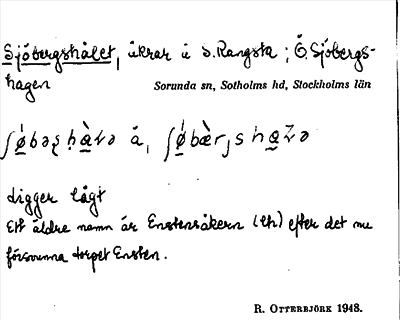 Sjöbergshålet, åkrar å S. Rangsta; Ö. Sjöbergs-
hagen
Sorunda sn, Sotholms hd, Stockholms län
å,
ligger lågt
Ett äldre namn är Enstensåkern (lh) efter det nu
försvunna torpet Ensten.
R. OTTERBJÖRK 1948.